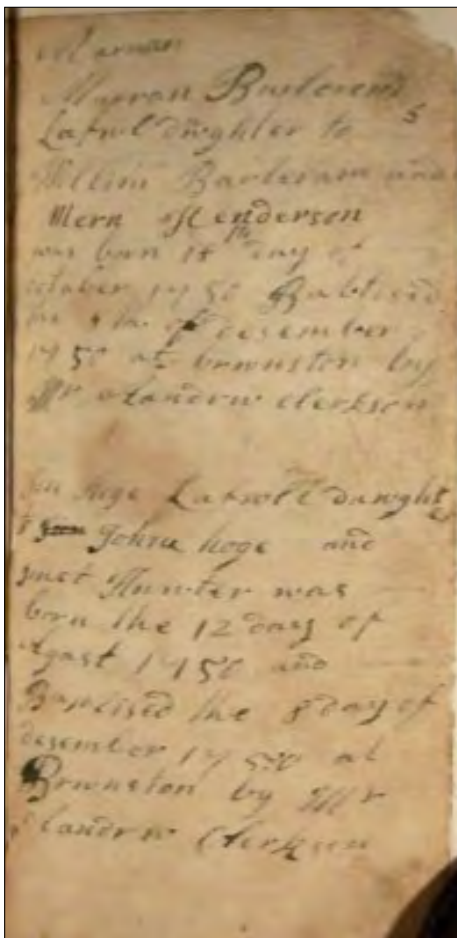 Marran
Marran Barlorend
5
Lafwl dwghter to
Willim Barleram and
Mern Henderson
was born 18th day of
october 1750 Babtised
the of desember
1750 at brwnston by
Mr alandrw Clerkson
hoge Lafwll dawght
Johnn hoge and
Hunter was
born the 12 days of
Agast 1750 and
Baptised the 8 day of
desember 1750 at
Brwnston by Mr
alandrw Clerkson